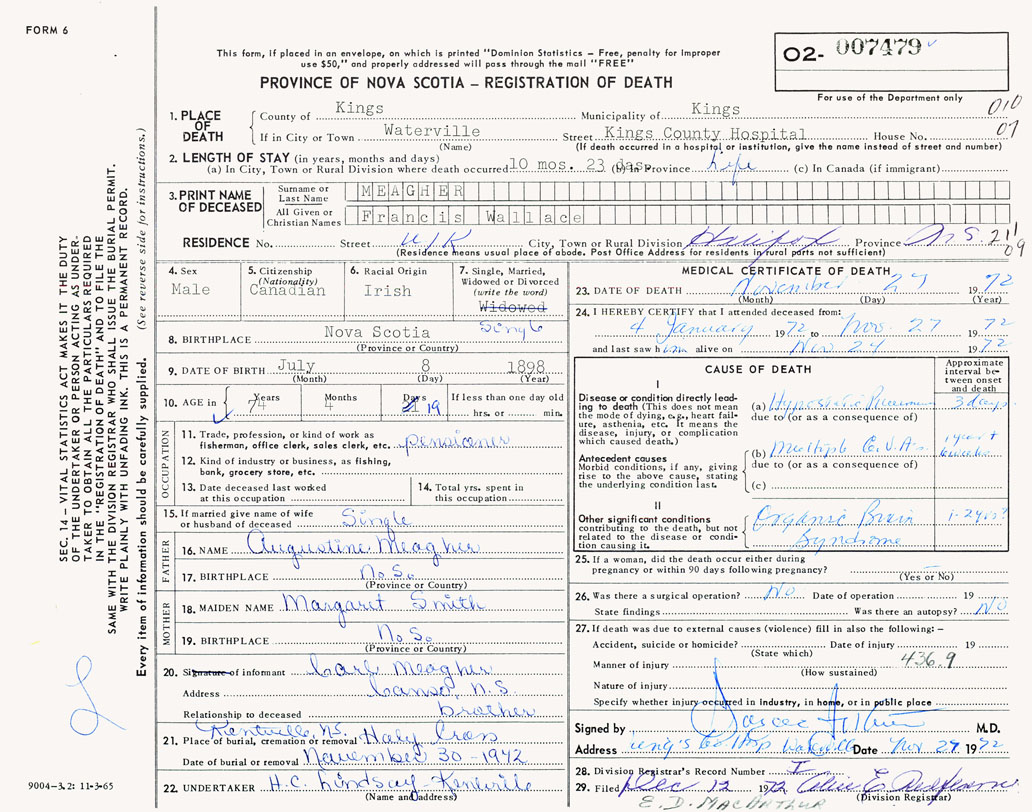 FORM 6
This form, if placed in an envelope, on which is printed "Dominion Statistics – Free, penalty for improper
use $50," and properly addressed will pass through the mail "FREE"
PROVINCE OF NOVA SCOTIA – REGISTRATION OF DEATH
O2- 007479
For use of the Department only
010
07
1. PLACE OF DEATH
County of Kings Municipality of Kings
If in City or Town Waterville Street Kings County Hospital House No.
(Name) (If death occurred in a hospital or institution, give the name instead of street and number)
2. LENGTH OF STAY (in years, months and days)
(a) In City, Town or Rural Division where death occurred 10 mos. 23 days (b) In Province Life (c) In Canada (if immigrant)
3. PRINT NAME OF DECEASED
Surname or Last Name MEAGHER
All Given or Christian Names Francis Wallace
RESIDENCE No. Street U/K City, Town or Rural Division Halifax Province N.S. 211
09
(Residence means usual place of abode. Post Office Address for residents in rural parts not sufficient)
4. Sex
Male
5. Citizenship
(Nationality)
Canadian
6. Racial Origin
Irish
7. Single, Married,
Widowed or Divorced
(write the word)
Widowed
Single
8. BIRTHPLACE Nova Scotia
(Province or Country)
9. DATE OF BIRTH July 8 1898
(Month) (Day) (Year)
10. AGE in Years Months Days If less than one day old
74 4 21 19 hrs. or min.
OCCUPATION
11. Trade, profession, or kind of work as
fisherman, office clerk, sales clerk, etc. pensioner
12. Kind of industry or business, as fishing,
bank, grocery store, etc.
13. Date deceased last worked
at this occupation
14. Total yrs. spent in
this occupation
15. If married give name of wife
or husband of deceased Single
FATHER
16. NAME Augustine Meagher
17. BIRTHPLACE N.S.
(Province or Country)
MOTHER
18. MAIDEN NAME Margaret Smith
19. BIRTHPLACE N.S.
(Province or Country)
20. Signature of informant Carl Meagher
Address Canso, N.S.
Relationship to deceased brother
Kentville, NS.
21. Place of burial, cremation or removal Holy Cross
Date of burial or removal November 30 - 1942
22. UNDERTAKER H.C. Lindsay - Kentville
(Name and address)
MEDICAL CERTIFICATE OF DEATH
23. DATE OF DEATH November 27 1972
(Month) (Day) (Year)
24. I HEREBY CERTIFY that I attended deceased from:
4 January 1972 to Nov. 27 1972
and last saw him alive on Nov 24 1972
CAUSE OF DEATH
Approximate interval between onset and death
I
Disease or condition directly lead-
ing to death (This does not mean
the mode of dying, e.g., heart failure,
asthenia, etc. It means the
disease, injury, or complication
which caused death.)
(a) Hypostatic Pneumonia 3 days
due to (or as a consequence of)
Antecedent causes
Morbid conditions, if any, giving
rise to the above cause, stating
the underlying condition last.
(b) Multiple C.V.A's 1 year +
due to (or as a consequence of)
(c)
II
Other significant conditions
contributing to the death, but not
related to the disease or condi-
tion causing it.
Organic Brain 1-2 yrs?
Syndrome
25. If a woman, did the death occur either during
pregnancy or within 90 days following pregnancy?
(Yes or No)
26. Was there a surgical operation? No Date of operation 19
State findings Was there an autopsy? No
27. If death was due to external causes (violence) fill in also the following: –
Accident, suicide or homicide? Date of injury 19
(State which)
Manner of injury 436.9
(How sustained)
Nature of injury
Specify whether injury occurred in Industry, in home, or in public place
Signed by M.D.
Address King's Co. Hosp Waterville Date Nov 27 1972
28. Division Registrar's Record Number
29. Filed Dec 12 1972
(Division Registrar)
E. D. MACARTHUR
SEC. 14 – VITAL STATISTICS ACT MAKES IT THE DUTY
OF THE UNDERTAKER OR PERSON ACTING AS UNDER-
TAKER TO OBTAIN ALL THE PARTICULARS REQUIRED
IN THE "REGISTRATION OF DEATH" AND TO FILE THE
SAME WITH THE DIVISION REGISTRAR WHO SHALL ISSUE THE BURIAL PERMIT.
WRITE PLAINLY WITH UNFADING INK. THIS IS A PERMANENT RECORD.
Every item of information should be carefully supplied. (See reverse side for instructions.)
9004-3.2: 11-3-65